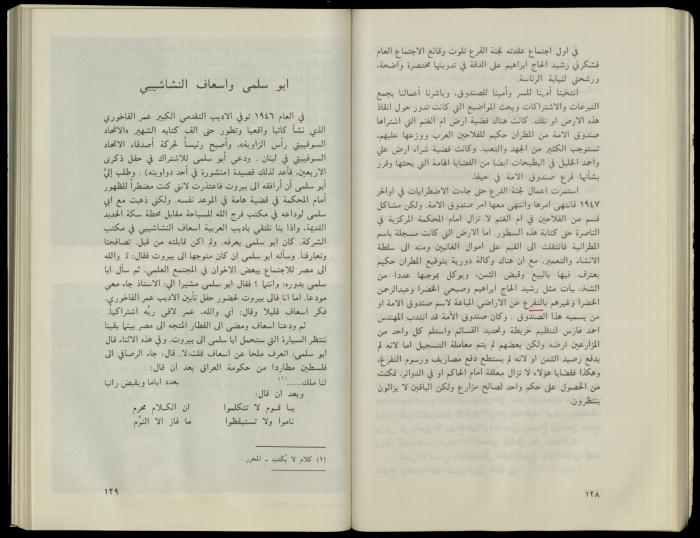 في اول اجتماع عقدته لجنة الفرع تلوت وقائع الاجتماع العام
فشكرني رشيد الحاج ابراهيم على الدقة في تدوينها مختصرة واضحة،
ورشحني لنيابة الرئاسة.
انتخبنا أمينا للسر وأمينا للصندوق، وباشرنا أعمالنا بجمع
التبرعات والاشتراكات وبحث المواضيع التي كانت تدور حول انقاذ
هذه الارض او تلك. كانت هناك قضية ارض ام الغنم التي اشتراها
صندوق الامة من المطران حكيم للفلاحين العرب ووزعها عليهم،
تستوجب الكثير من الجهد والتعب. وكانت قضية شراء ارض علي
واحمد الخليل في البطيحات ايضا من القضايا الهامة التي بحثها وقرر
بشأنها فرع صندوق الامة في حيفا.
استمرت اعمال لجنة الفرع حتى جاءت الاضطرابات في اواخر
١٩٤٧ فانتهى امرها وانتهى معها امر صندوق الامة. ولكن مشاكل
قسم من الفلاحين في ام الغنم لا تزال امام المحكمة المركزية في
الناصرة حتى كتابة هذه السطور. اما الارض التي كانت مسجلة باسم
المطرانية فانتقلت الى القيم على اموال الغائبين ومنه الى سلطة
الانشاء والتعمير. مع ان هناك وكالة دورية بتوقيع المطران حكيم
يعترف فيها بالبيع وقبض الثمن، ويوكل بموجبها عددا من
الشخصيات مثل رشيد الحاج ابراهيم وصبحي الخضرا وعبدالرحمن
الخضرا وغيرهم بالتفرغ عن الاراضي المباعة لاسم صندوق الامة او
من يسميه هذا الصندوق. وكان صندوق الأمة قد انتدب المهندس
احمد فارس لتنظيم خريطة وتحديد القسائم واستلم كل واحد من
المزارعين ارضه ولكن بعضهم لم يتم معاملة التسجيل اما لانه لم
يدفع رصيد الثمن او لانه لم يستطع دفع مصاريف ورسوم التفرغ،
وهكذا فقضايا هؤلاء لا تزال معلقة امام الحاكم او في الدوائر. تمكنت
من الحصول على حكم واحد لصالح مزارع ولكن الباقين لا يزالون
ينتظرون.
١٢٨
ابو سلمى واسعاف النشاشيبي
في العام ١٩٤٦ توفي الاديب التقدمي الكبير عمر الفاخوري
الذي نشأ كاتبا واقعيا وتطور حتى الف كتابه الشهير «الاتحاد
السوفييتي رأس الزاوية»، وأصبح رئيساً لحركة أصدقاء الاتحاد
السوفييتي في لبنان. ودعي أبو سلمى للاشتراك في حفل ذكرى
الاربعين، فأعد لذلك قصيدة (منشورة في أحد دواوينه). وطلب إليّ
أبو سلمى أن أرافقه الى بيروت فاعتذرت لانني كنت مضطراً للظهور
أمام المحكمة في قضية هامة في الموعد نفسه. ولكني ذهبت مع أبي
سلمى لوداعه في مكتب فرج الله للسياحة مقابل محطة سكة الحديد
القديمة، واذا بنا نلتقي باديب العربية اسعاف النشاشيبي في مكتب
الشركة. كان ابو سلمى يعرفه، ولم اكن قابلته من قبل. تصافحنا
وتعارفنا. وسأله ابو سلمى ان كان متوجها الى بيروت فقال: لا والله
الى مصر للاجتماع ببعض الاخوان في المجتمع العلمي. ثم سأل ابا
سلمى بدوره: وانتما؟ فقال ابو سلمى مشيرا الي: الاستاذ جاء معي
مودعا. اما انا فالى بيروت لحضور حفل تأبين الاديب عمر الفاخوري.
فكر اسعاف قليلا وقال: اي والله، عمر لاقى ربّه اشتراكيا.
ثم ودعنا اسعاف ومضى الى القطار المتجه الى مصر بينما بقينا
ننتظر السيارة التي ستحمل ابا سلمى الى بيروت. وفي هذه الاثناء قال
ابو سلمى: اتعرف ملحا عن اسعاف قلت:لا. قال: جاء الرصافي الى
فلسطين مطاردا من حكومة العراق بعد ان قال:
لنا ملك......(١) يعدد اياما ويقبض راتبا
وبعد ان قال:
يا قوم لا تتكلموا ان الكلام محرم
ناموا ولا تستيقظوا ما فاز الا النوّم
(١) كلام لا يُكتب - المحرر.
١٢٩